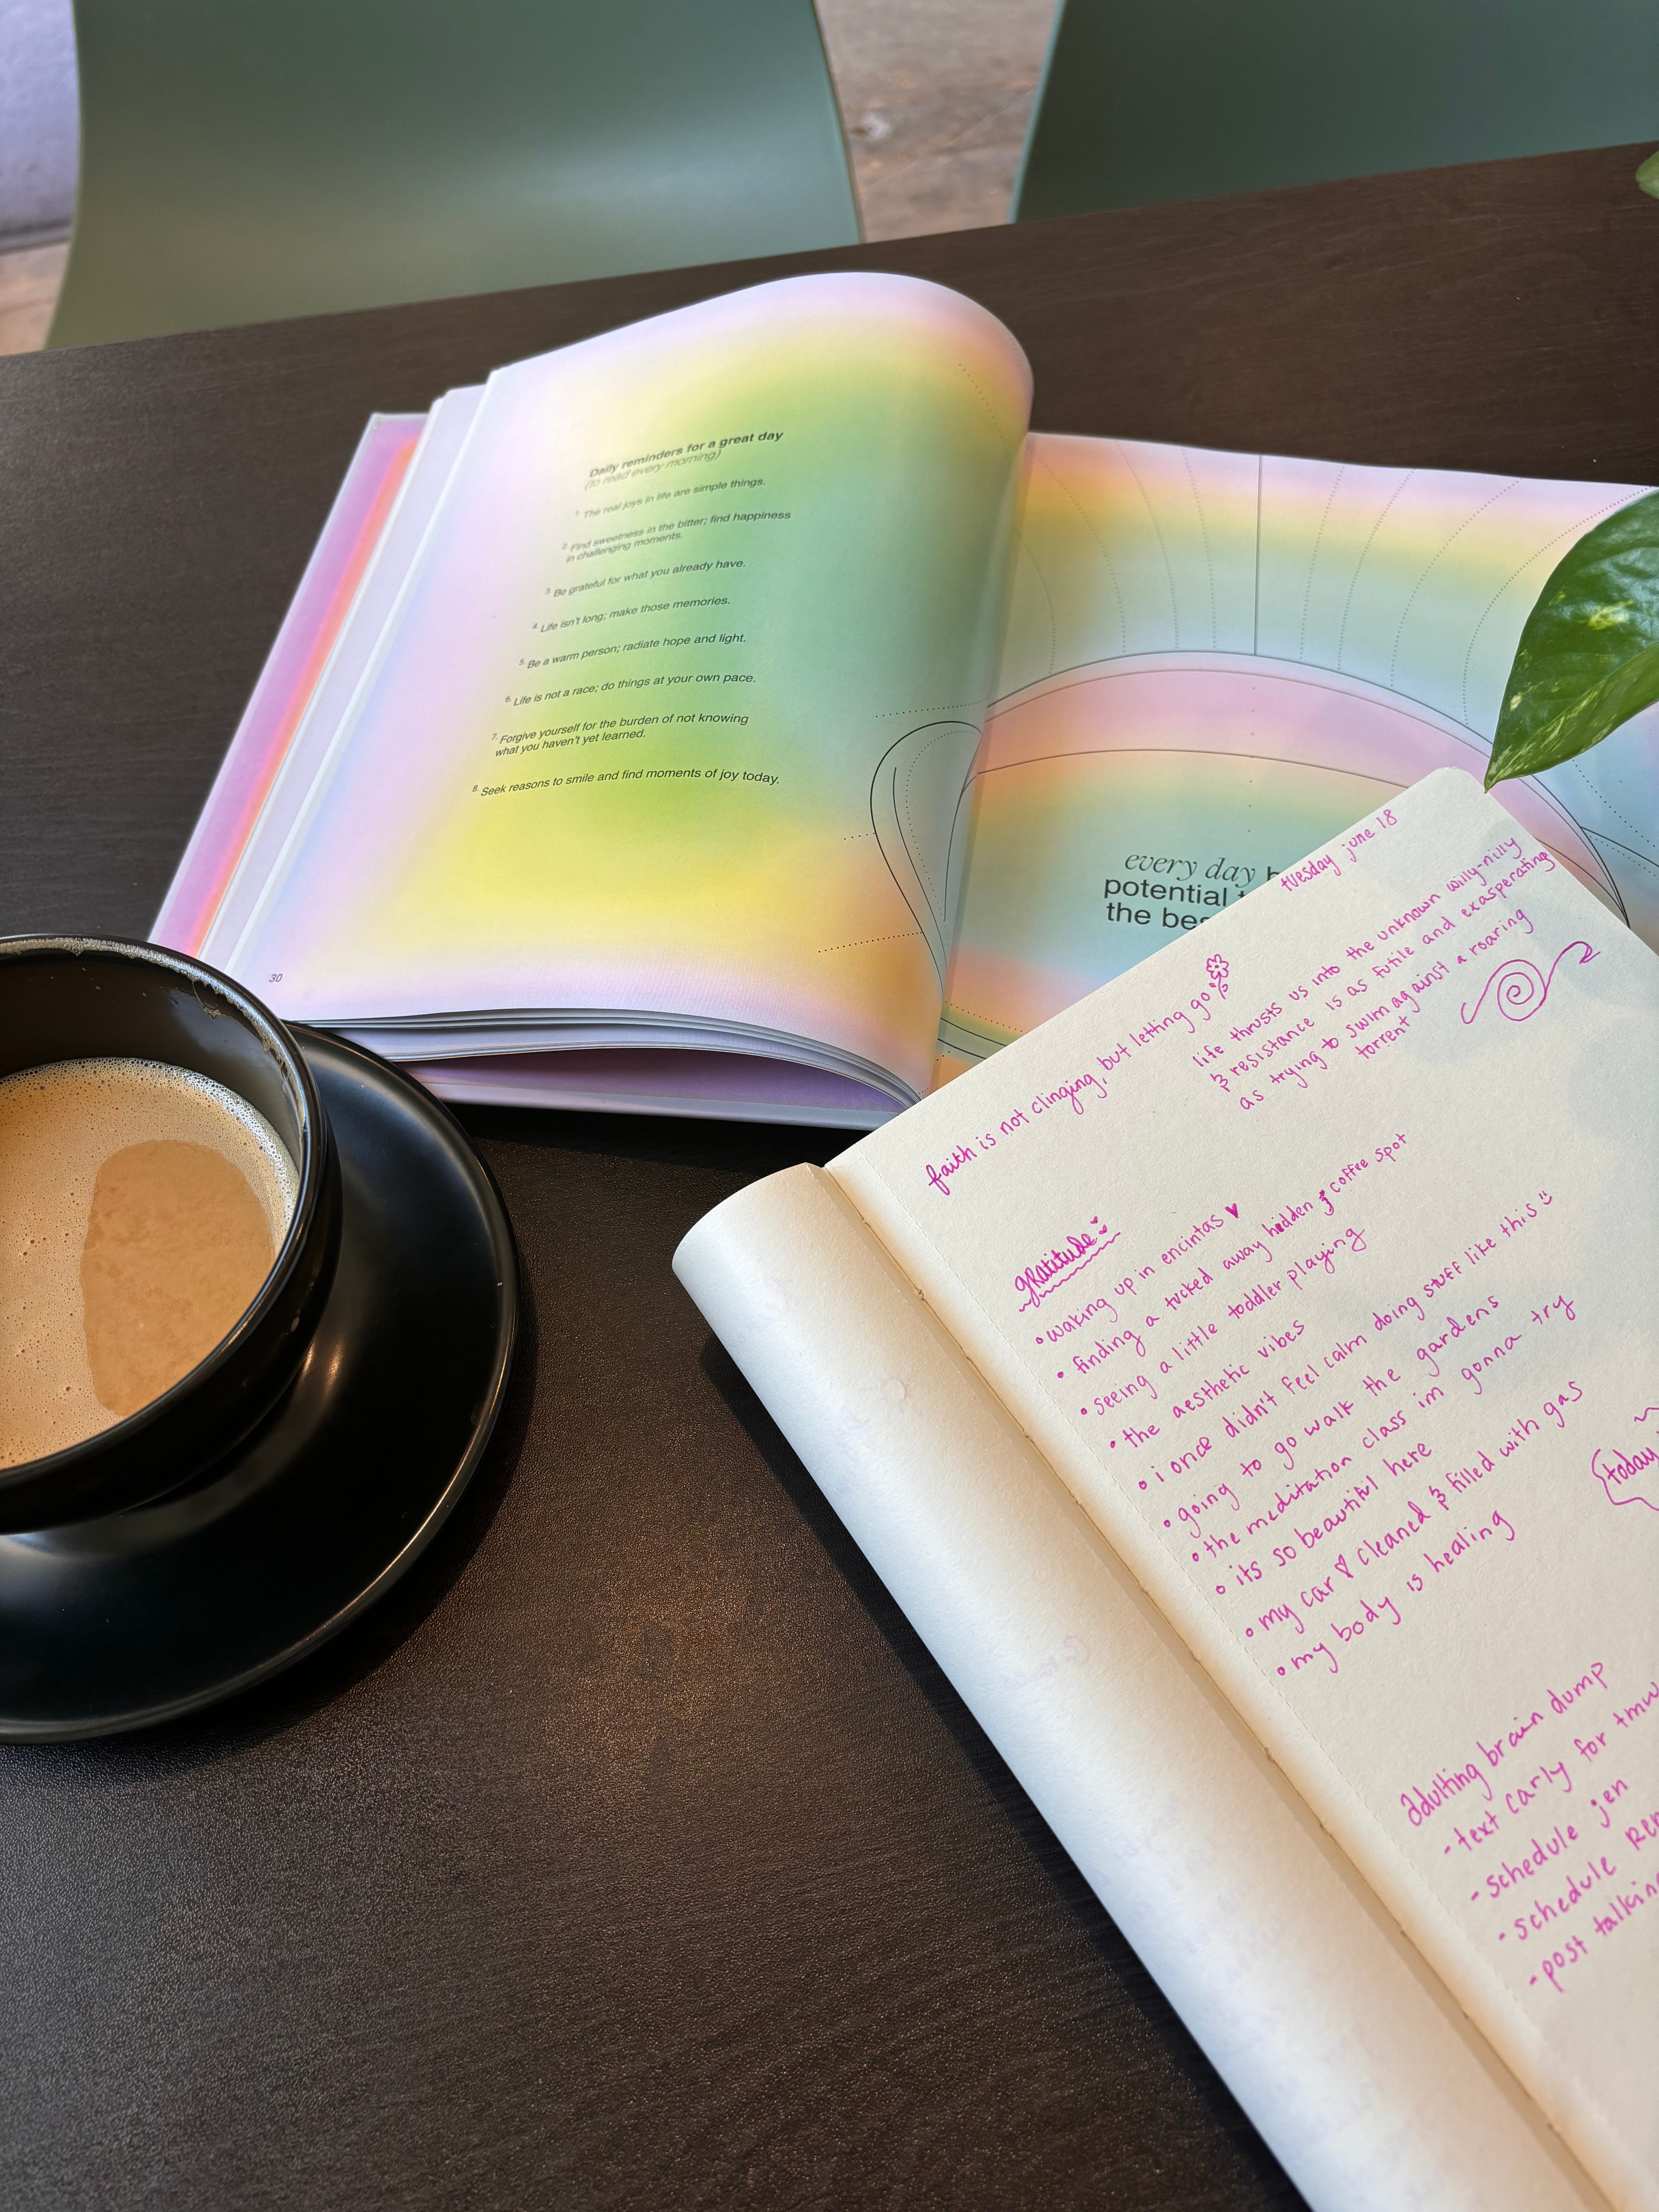 Daily reminders for a great day
(to read every morning)
1. The real joys in life are simple things.
2. Find sweetness in the bitter; find happiness
in challenging moments.
3. Be grateful for what you already have.
4. Life isn't long; make those memories.
5. Be a warm person; radiate hope and light.
6. Life is not a race; do things at your own pace.
7. Forgive yourself for the burden of not knowing
what you haven't yet learned.
8. Seek reasons to smile and find moments of joy today.
30
every day
potential
the
tuesday june 18
faith is not clinging, but letting go
life thrusts us into the unknown willy-nilly
& resistance is as futile and exasperating
as trying to swim against a roaring
torrent
gratitude
• waking up in encintas ♥
• finding a tucked away hidden coffee spot
• seeing a little toddler playing
• the aesthetic vibes
• i once didn't feel calm doing stuff like this
• going to go walk the gardens
• the meditation class im gonna try
• its so beautiful here
• my car cleaned & filled with gas
• my body is healing
today
adulting brain dump
- text carly for tmw
- schedule jen
- schedule
- post